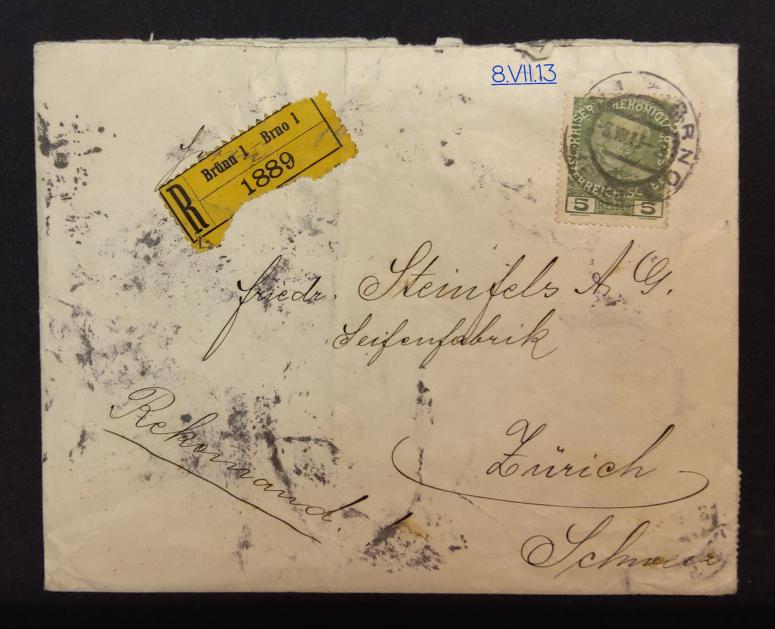 8.VII.13
BRNO
5 5
R
Brünn 1 Brno 1
1889
Friedr. Steinfels A. G.
Seifenfabrik
Rekomand.
Zürich
Schweiz